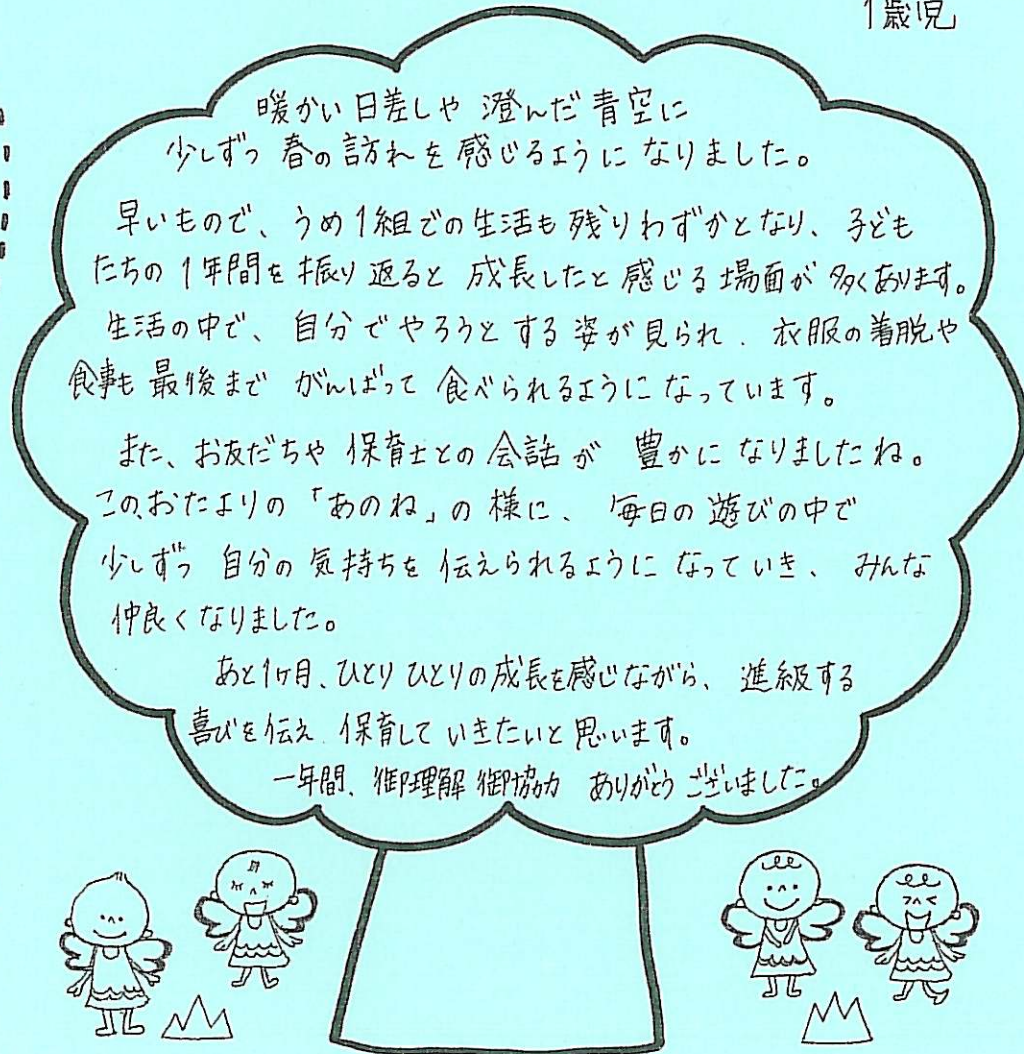 1歳児
暖かい日差しや 澄んだ青空に
少しずつ 春の訪れを感じるようになりました。
早いもので、うめ1組での生活も残りわずかとなり、子ども
たちの1年間を振り返ると 成長したと感じる場面が多くあります。
生活の中で、自分でやろうとする姿が見られ、衣服の着脱や
食事も最後まで がんばって食べられるようになっています。
また、お友だちや 保育士との会話が 豊かになりましたね。
この、おたよりの「あのね」の様に、毎日の遊びの中で
少しずつ 自分の気持ちを伝えられるようになっていき、みんな
仲良くなりました。
あと1ヶ月、ひとりひとりの成長を感じながら、進級する
喜びを伝え 保育していきたいと思います。
一年間、御理解 御協力 ありがとうございました。